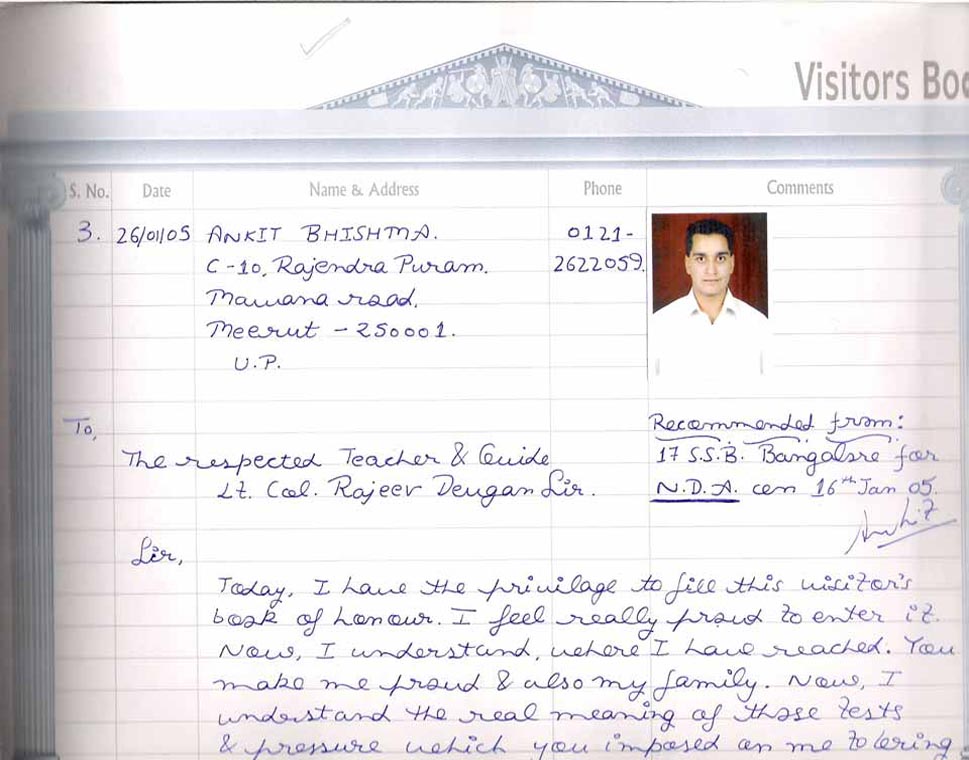 Visitors Boo
S. No. Date Name & Address Phone Comments
3. 26/01/05 ANKIT BHISHMA. 0121-
C-10, Rajendra Puram. 2622059.
Mawana road,
Meerut - 250001.
U.P.
To, Recommended from:
The respected Teacher & Guide 17 S.S.B. Bangalore for
Lt. Col. Rajeev Deugan Sir. N.D.A. on 16th Jan 05.
Sir,
Today, I have the privilage to fill this visitor's
book of honour. I feel really proud to enter it.
Now, I understand, where I have reached. You
make me proud & also my family. Now, I
understand the real meaning of those tests
& pressure which you imposed on me to bring